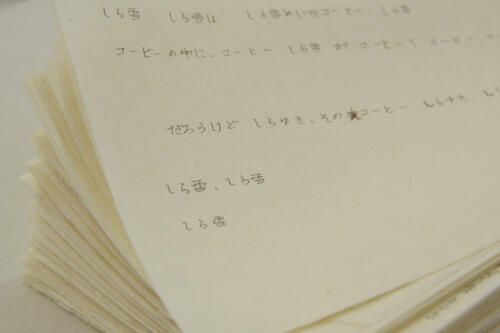 しら雪 しら雪は しら雪めいたコーヒー、しら雪
コーヒーの中に、コーヒー しら雪 が コーヒーて コーヒー
だろうけど しらゆき、その コーヒー しらゆき
しら雪、しら雪
しら雪